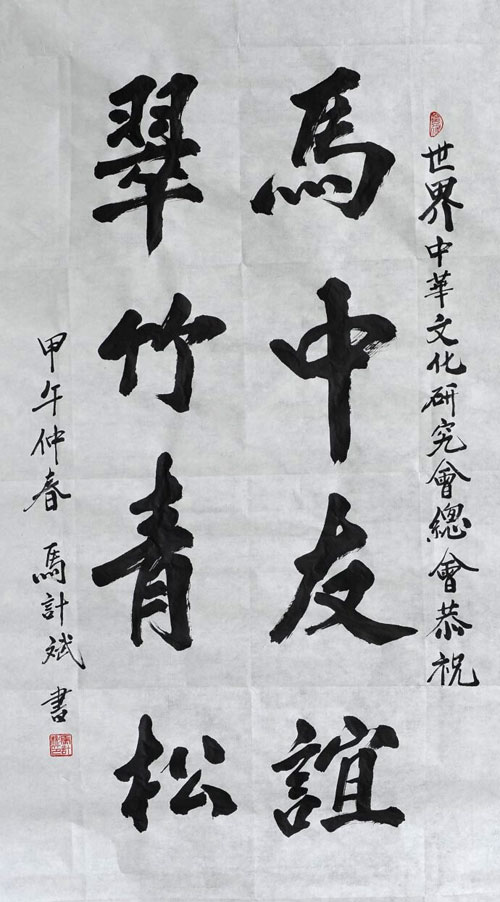 世界中華文化研究會總會恭祝
馬中友誼
翠竹青松
甲午仲春 馬計斌 書